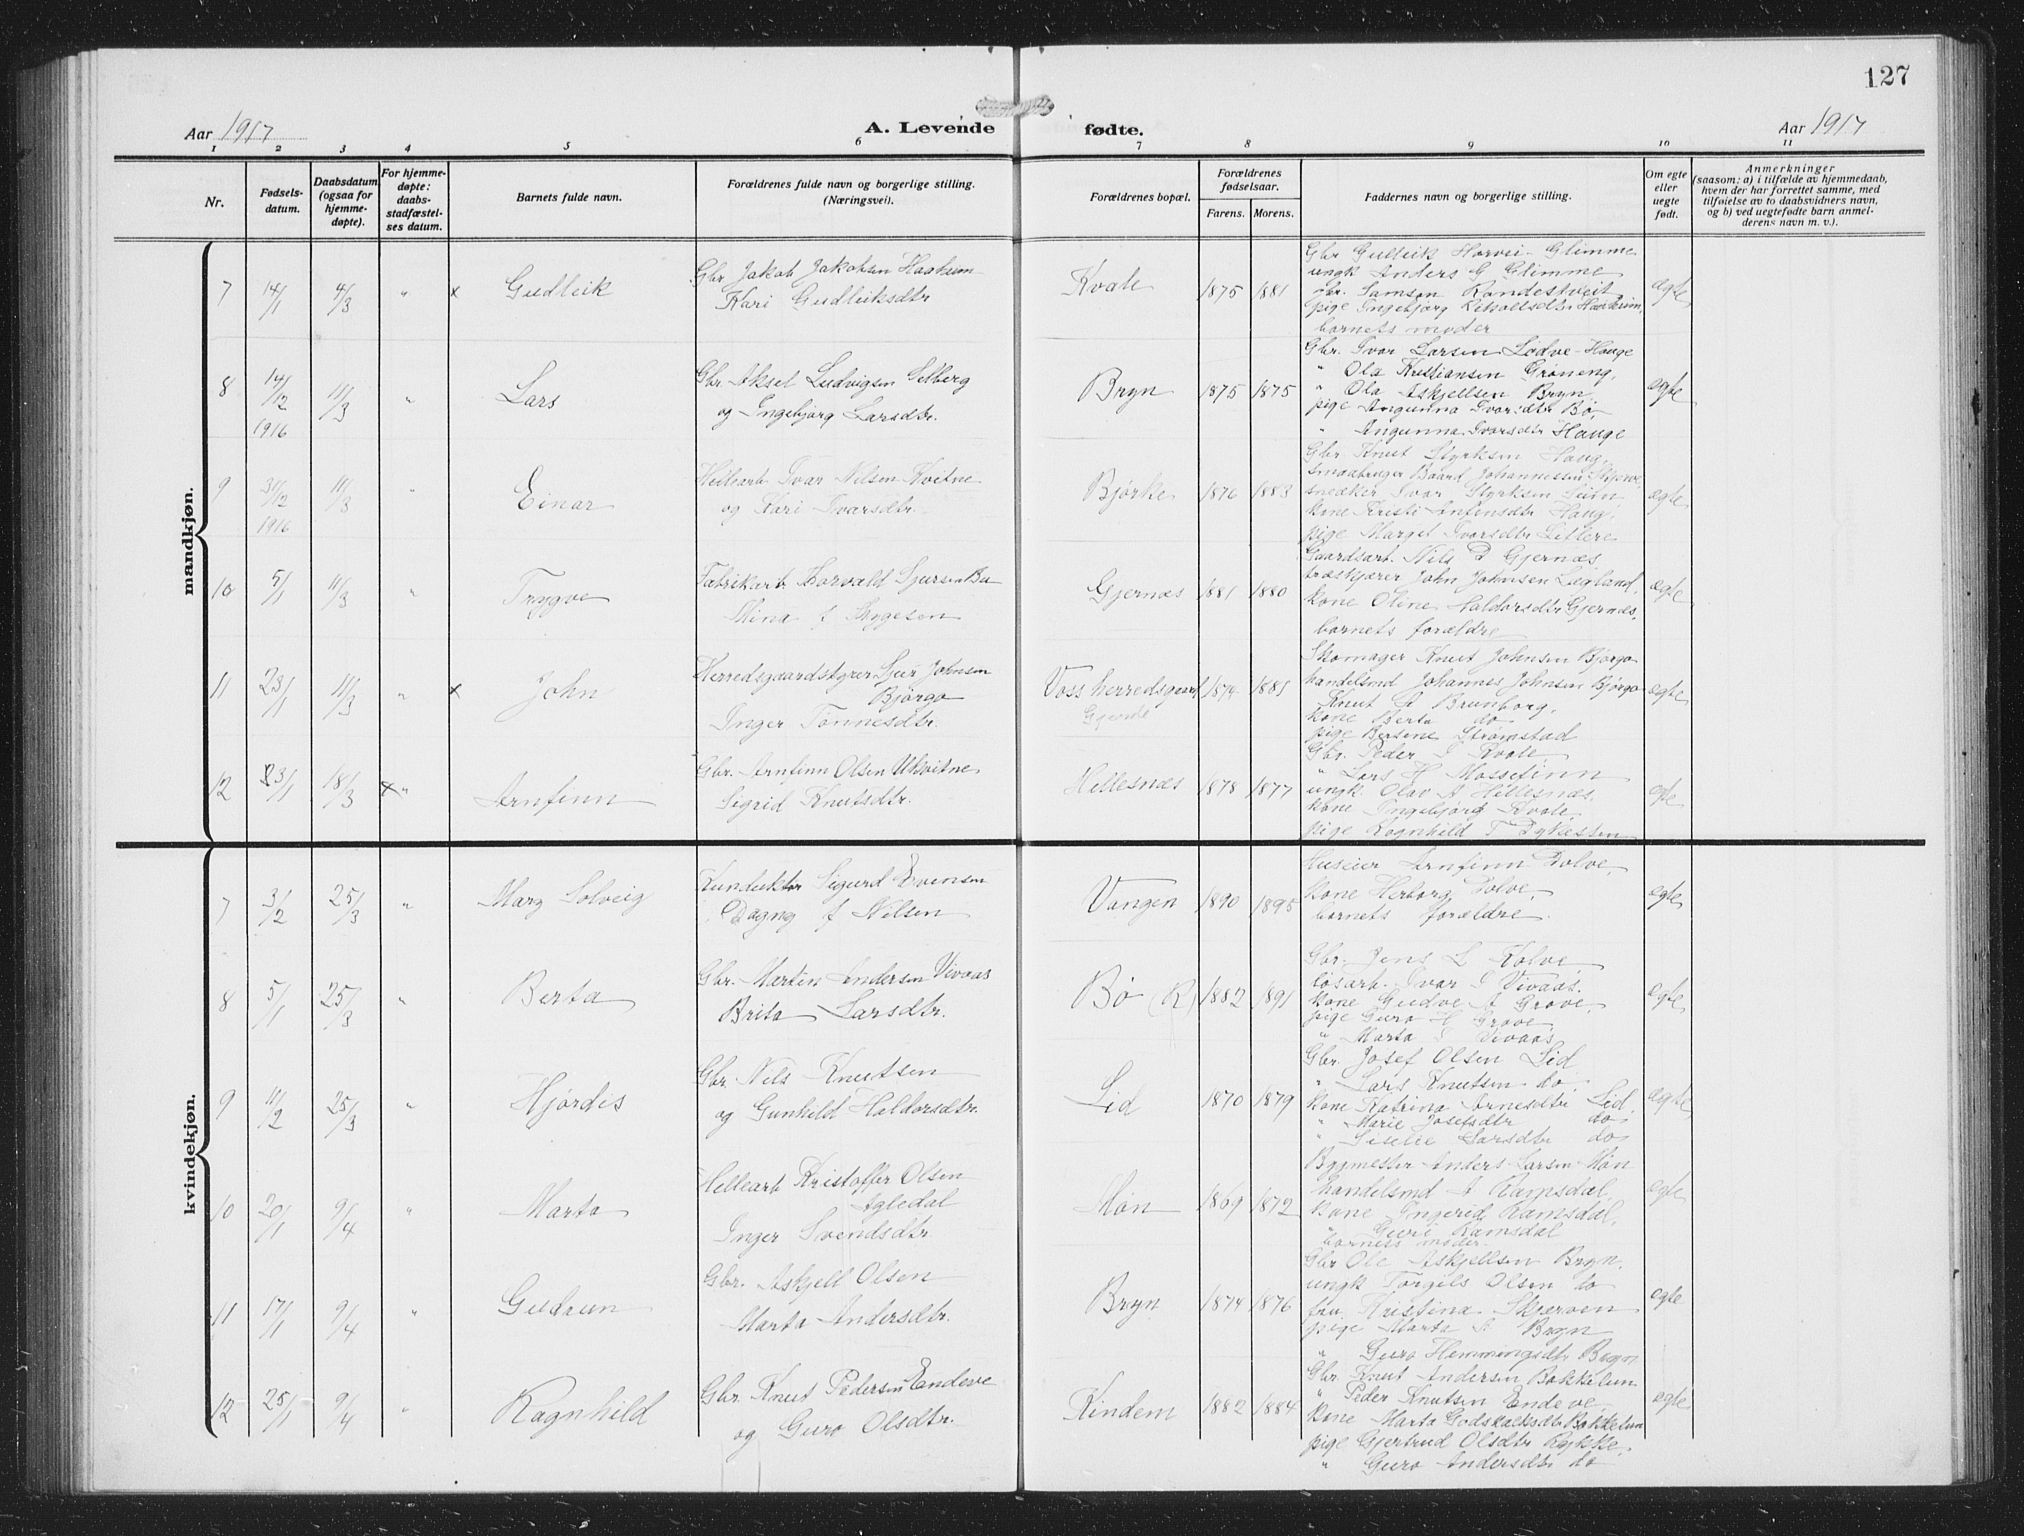 127
Aar 1917
A. Levende fødte.
Aar 1917
1 2 3 4 5 6 7 8 9 10 11
Nr.
Fødsels-
datum.
Daabsdatum
(ogsaa for
hjemme-
døpte).
For hjemme-
døpte:
daabs-
stadfæstel-
ses datum.
Barnets fulde navn.
Forældrenes fulde navn og borgerlige stilling.
(Næringsvei).
Forældrenes bopæl.
Forældrenes
fødselsaar.
Farens. Morens.
Faddernes navn og borgerlige stilling.
Om egte
eller
uegte
født.
Anmerkninger
(saasom: a) i tilfælde av hjemmedaab,
hvem der har forrettet samme, med
tilføielse av to daabsvidners navn,
og b) ved uegtefødte barn anmel-
derens navn m. v.).
mandkjøn.
7 14/1 4/3 " x Gudleik
Gbr Jakob Jakobsen
Kari Gudleiksdtr
Kvale 1875 1881
Gbr Gulleik Horvei - Glimme
ungk Anders G Glimme
gbr. Samsen Rondestveit
pige Ingebjørg
barnets moder
egte
8 14/12 1916 11/3 " Lars
Gbr Aksel Ludvigsen Selberg
og Ingebjørg Larsdtr.
Bryn 1875 1875
Gbr. Ivar Larsen Lødve - Hauge
" Ola Kristiansen Grøneng,
" Ola Askjellsen Bryn,
pige Angunna Ivarsdtr Bø,
" Angunna Ivarsdtr Hauge
egte
9 31/12 1916 11/3 " Einar
Hellearb Ivar Nilsen Kvitne
og Kari Ivarsdtr.
Bjørke 1876 1883
Gbr. Knut Styrksen Haug,
smaabruger Baard Johannessen Skjerve
snedker Ivar Styrksen
kone Kristi Anfinsdtr Haug,
pige Marget Ivarsdtr
egte
10 5/1 11/3 " Trygve
Fabrikarb Torvald Sjursen Bu
Mina f Thygesen
Gjernæs 1881 1880
Gaardsarb. Nils D Gjernæs,
træskjærer John Johnsen Lægland,
kone Oline Haldorsdtr Gjernæs,
barnets forældre
egte
11 23/1 11/3 " x John
Herredsgaardstyrer Sjur Johnsen
Bjørgo
Inger Tønnesdtr.
Voss herredsgaard
Gjerde
1874 1881
Skomager Knut Johnsen Bjørgo
handelsmd Johannes Johnsen Bjørgo
Knut A Brunborg,
kone Berta do
pige Bertine Strømstad
egte
12 23/1 18/3 x " Arnfinn
Gbr. Arnfinn Olsen Ukvitne
Sigrid Knutsdtr.
Hillesnæs 1878 1877
Gbr. Peder I Kvale
" Lars H Mossefinn
ungk Olav A Hillesnæs,
kone Ingebjørg Kvale
pige Ragnhild T Dykesteen
egte
kvindekjøn.
7 3/2 25/3 " Mary Solveig
Konduktør Sigurd Evensen
Dagny f Nilsen
Vangen 1890 1895
Huseier Arnfinn Dolve,
kone Herborg Dolve,
barnets forældre.
egte
8 5/1 25/3 " Berta
Gbr. Martin Andersen Vivaas
Brita Larsdtr.
Bø (R) 1882 1891
Gbr. Jens L Kolve
løsarb. Ivar I Vivaas,
kone Gudve A Grove,
pige Guro H Grove
" Marta I Vivaas
egte
9 11/2 25/3 " Hjørdis
Gbr Nils Knutsen
og Gunhild Haldorsdtr.
Lid 1870 1879
Gbr. Josef Olsen Lid
" Lars Knutsen do.
kone Katrina Arnesdtr Lid,
" Marie Josefsdtr do
" Siselie Larsdtr do
egte
10 20/1 9/4 " Marta
Hellearb Kristoffer Olsen
Agledal
Inger Svendsdtr.
Møn 1869 1872
Bygmester Anders Larsen Møn
handelsmd A Ramsdal,
kone Ingerid Ramsdal,
" Guri Ramsdal
barnets moder.
egte
11 17/1 9/4 " Gudrun
Gbr. Askjell Olsen
Marta Andersdtr.
Bryn 1874 1876
Gbr Ole Askjellsen Bryn,
ungk Torgils Olsen do
fru Kristina Skjerven
pige Marta A Bryn
" Guro Hemmingsdtr Bryn
egte
12 25/1 9/4 " Ragnhild
Gbr Knut Pedersen Endeve
og Guro Olsdtr.
Kindem 1882 1884
Gbr Knut Andersen Bokketun
" Peder Knutsen Endeve
kone Marta Godskalksdtr Bokketun
pige Gjertrud Olsdtr Rykke,
" Guro Andersdtr do
egte